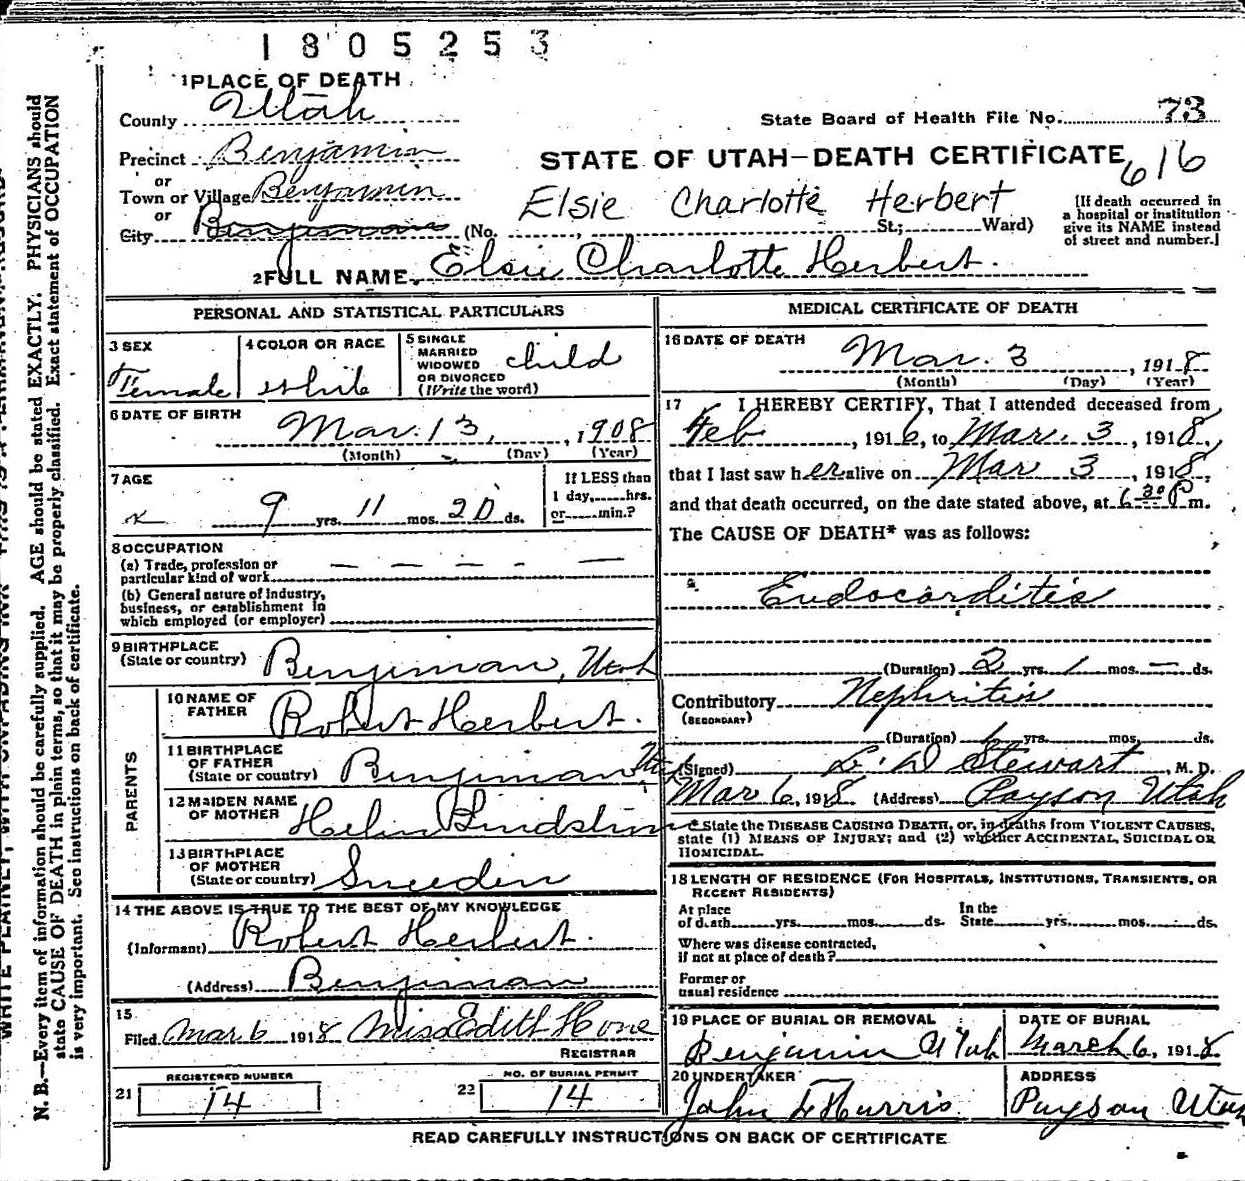 1805253
1 PLACE OF DEATH
County Utah
State Board of Health File No. 73
Precinct Benjamin
STATE OF UTAH—DEATH CERTIFICATE 616
or
Town or Village Benjamin
Elsie Charlotte Herbert
or
City Benjiman (No. , St.; Ward)
[If death occurred in
a hospital or institution
give its NAME instead
of street and number.]
2 FULL NAME Elsie Charlotte Herbert.
PERSONAL AND STATISTICAL PARTICULARS
3 SEX
Female
4 COLOR OR RACE
White
5 SINGLE
MARRIED
WIDOWED
OR DIVORCED
(Write the word)
child
6 DATE OF BIRTH
Mar. 13, , 1908
(Month) (Day) (Year)
7 AGE
9 yrs. 11 mos. 20 ds.
If LESS than
1 day, hrs.
or min.?
8 OCCUPATION
(a) Trade, profession or
particular kind of work
(b) General nature of industry,
business, or establishment in
which employed (or employer)
9 BIRTHPLACE
(State or country) Benjiman, Utah
PARENTS
10 NAME OF
FATHER Robert Herbert.
11 BIRTHPLACE
OF FATHER
(State or country) Benjiman Utah
12 MAIDEN NAME
OF MOTHER
13 BIRTHPLACE
OF MOTHER
(State or country) Sweeden
14 THE ABOVE IS TRUE TO THE BEST OF MY KNOWLEDGE
(Informant) Robert Herbert.
(Address) Benjiman
15
Filed Mar 6 1918 Miss Edith Hone
REGISTRAR
21 REGISTERED NUMBER
14
22 NO. OF BURIAL PERMIT
14
MEDICAL CERTIFICATE OF DEATH
16 DATE OF DEATH
Mar. 3 , 1918
(Month) (Day) (Year)
17 I HEREBY CERTIFY, That I attended deceased from
Feb , 1916, to Mar. 3 , 1918,
that I last saw her alive on Mar 3 , 1918,
and that death occurred, on the date stated above, at 6 30 P m.
The CAUSE OF DEATH* was as follows:
Endocarditis
(Duration) 2 yrs. 1 mos. — ds.
Contributory Nephritis
(SECONDARY)
(Duration) yrs. mos. ds.
(Signed) L. D Stewart, M. D.
Mar 6, 1918 (Address) Payson Utah
* State the DISEASE CAUSING DEATH, or, in deaths from VIOLENT CAUSES,
state (1) MEANS OF INJURY; and (2) whether ACCIDENTAL, SUICIDAL OR
HOMICIDAL.
18 LENGTH OF RESIDENCE (FOR HOSPITALS, INSTITUTIONS, TRANSIENTS, OR
RECENT RESIDENTS)
At place
of death yrs. mos. ds.
In the
State yrs. mos. ds.
Where was disease contracted,
if not at place of death?
Former or
usual residence
19 PLACE OF BURIAL OR REMOVAL
Benjamin Utah
DATE OF BURIAL
March 6, 1918
20 UNDERTAKER
John
ADDRESS
Payson Utah
READ CAREFULLY INSTRUCTIONS ON BACK OF CERTIFICATE
N. B.—Every item of information should be carefully supplied. AGE should be stated EXACTLY. PHYSICIANS should
state CAUSE OF DEATH in plain terms, so that it may be properly classified. Exact statement of OCCUPATION
is very important. See instructions on back of certificate.